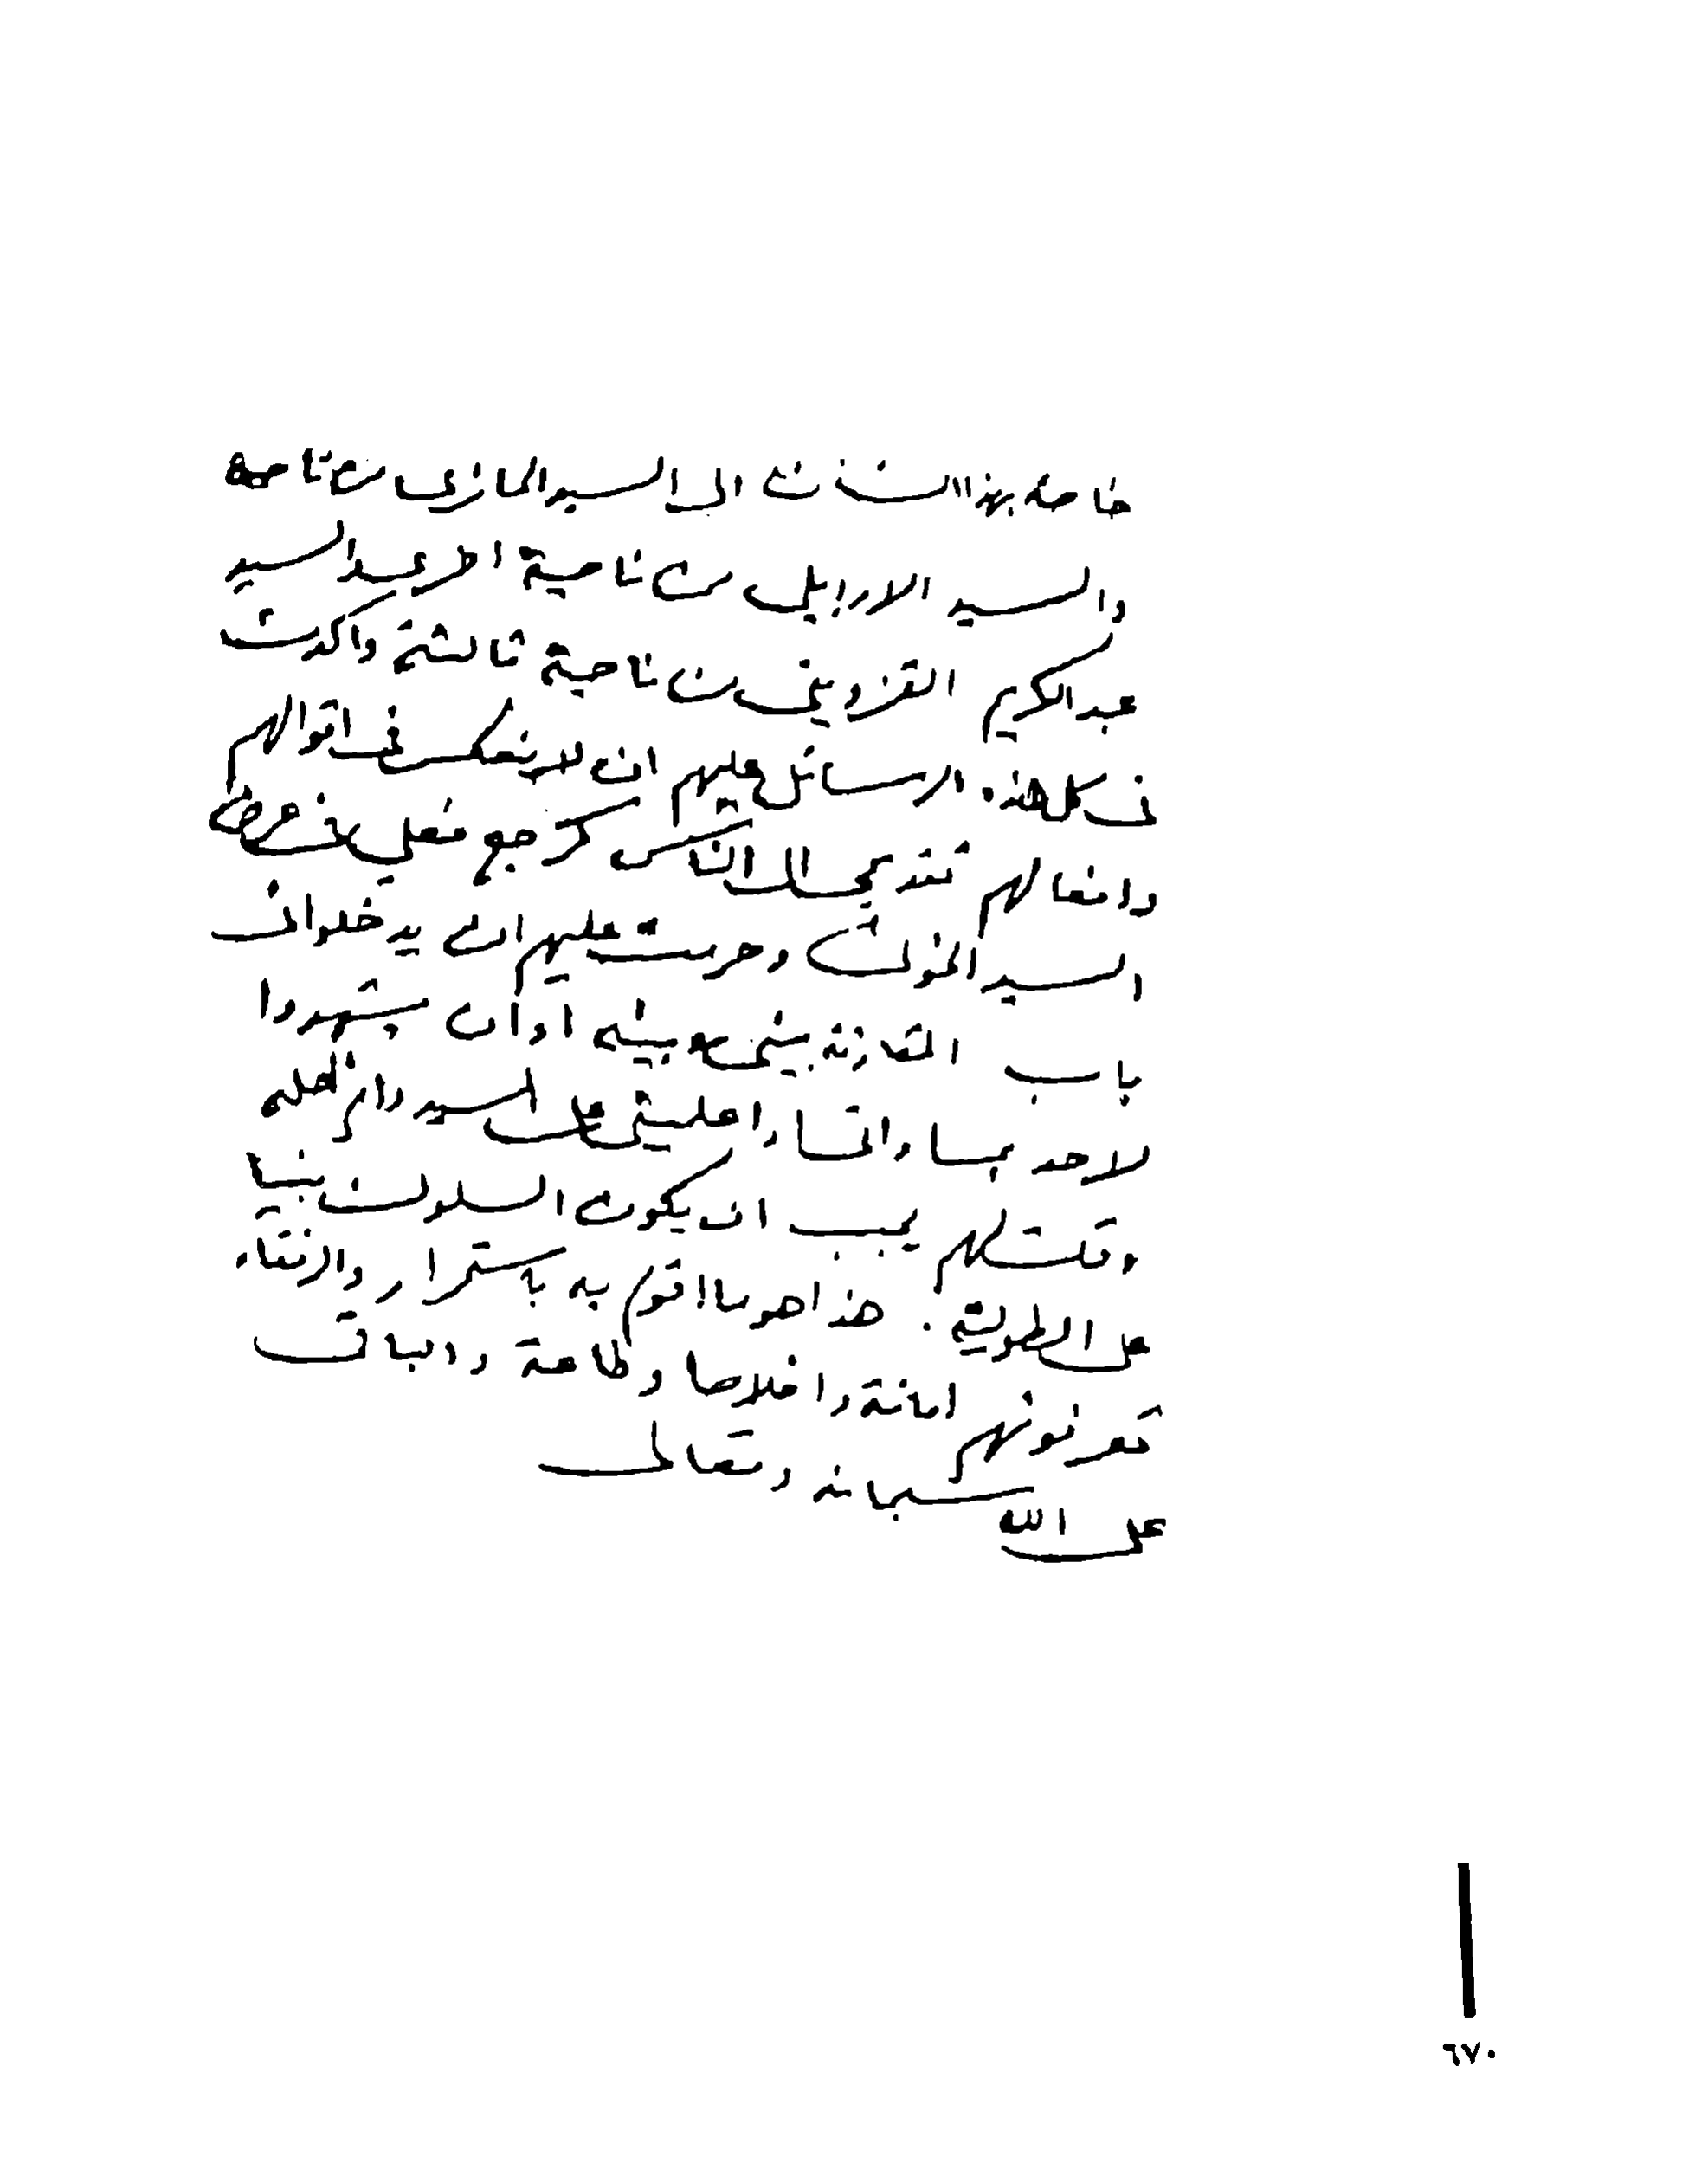 خاصة بهذا الشأن الى السيد المازني من ناحية
والسيد الاردبيلي من ناحية اخرى والسيد
عبدالكريم القزويني من ناحية ثالثة واكدت
في كل هذه الرسائل عليهم ان لا ينعكس في اقوالهم
وافعالهم تقديمي الى الناس كمرجع فعلي في عرض
السيد الخوئي وحرمت عليهم ان يدخلوا في
باب المقارنة بيني وبينه او ان يشهدوا
لاحد بمساواتنا
وقلت لهم يجب ان يكون السلوك مبنيا
على الطولية . هذا هو ما اقوم به باستمرار والانتباه
تعرفونهم امانة واخلاصا وطاعة والباقي
على الله سبحانه وتعالى
٦٧٠